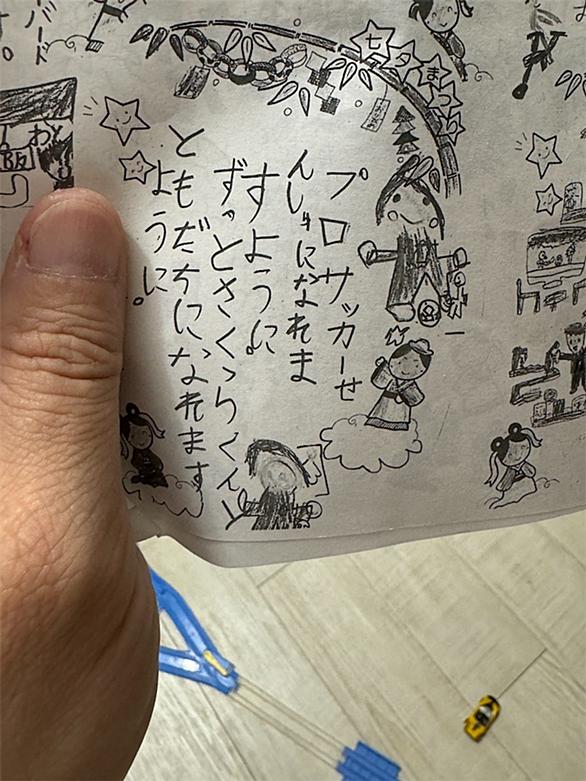 七夕まつり
プロサッカーせ
んしゅになれま
すように。
ずっとさくらくん
ともだちになれます
ように。